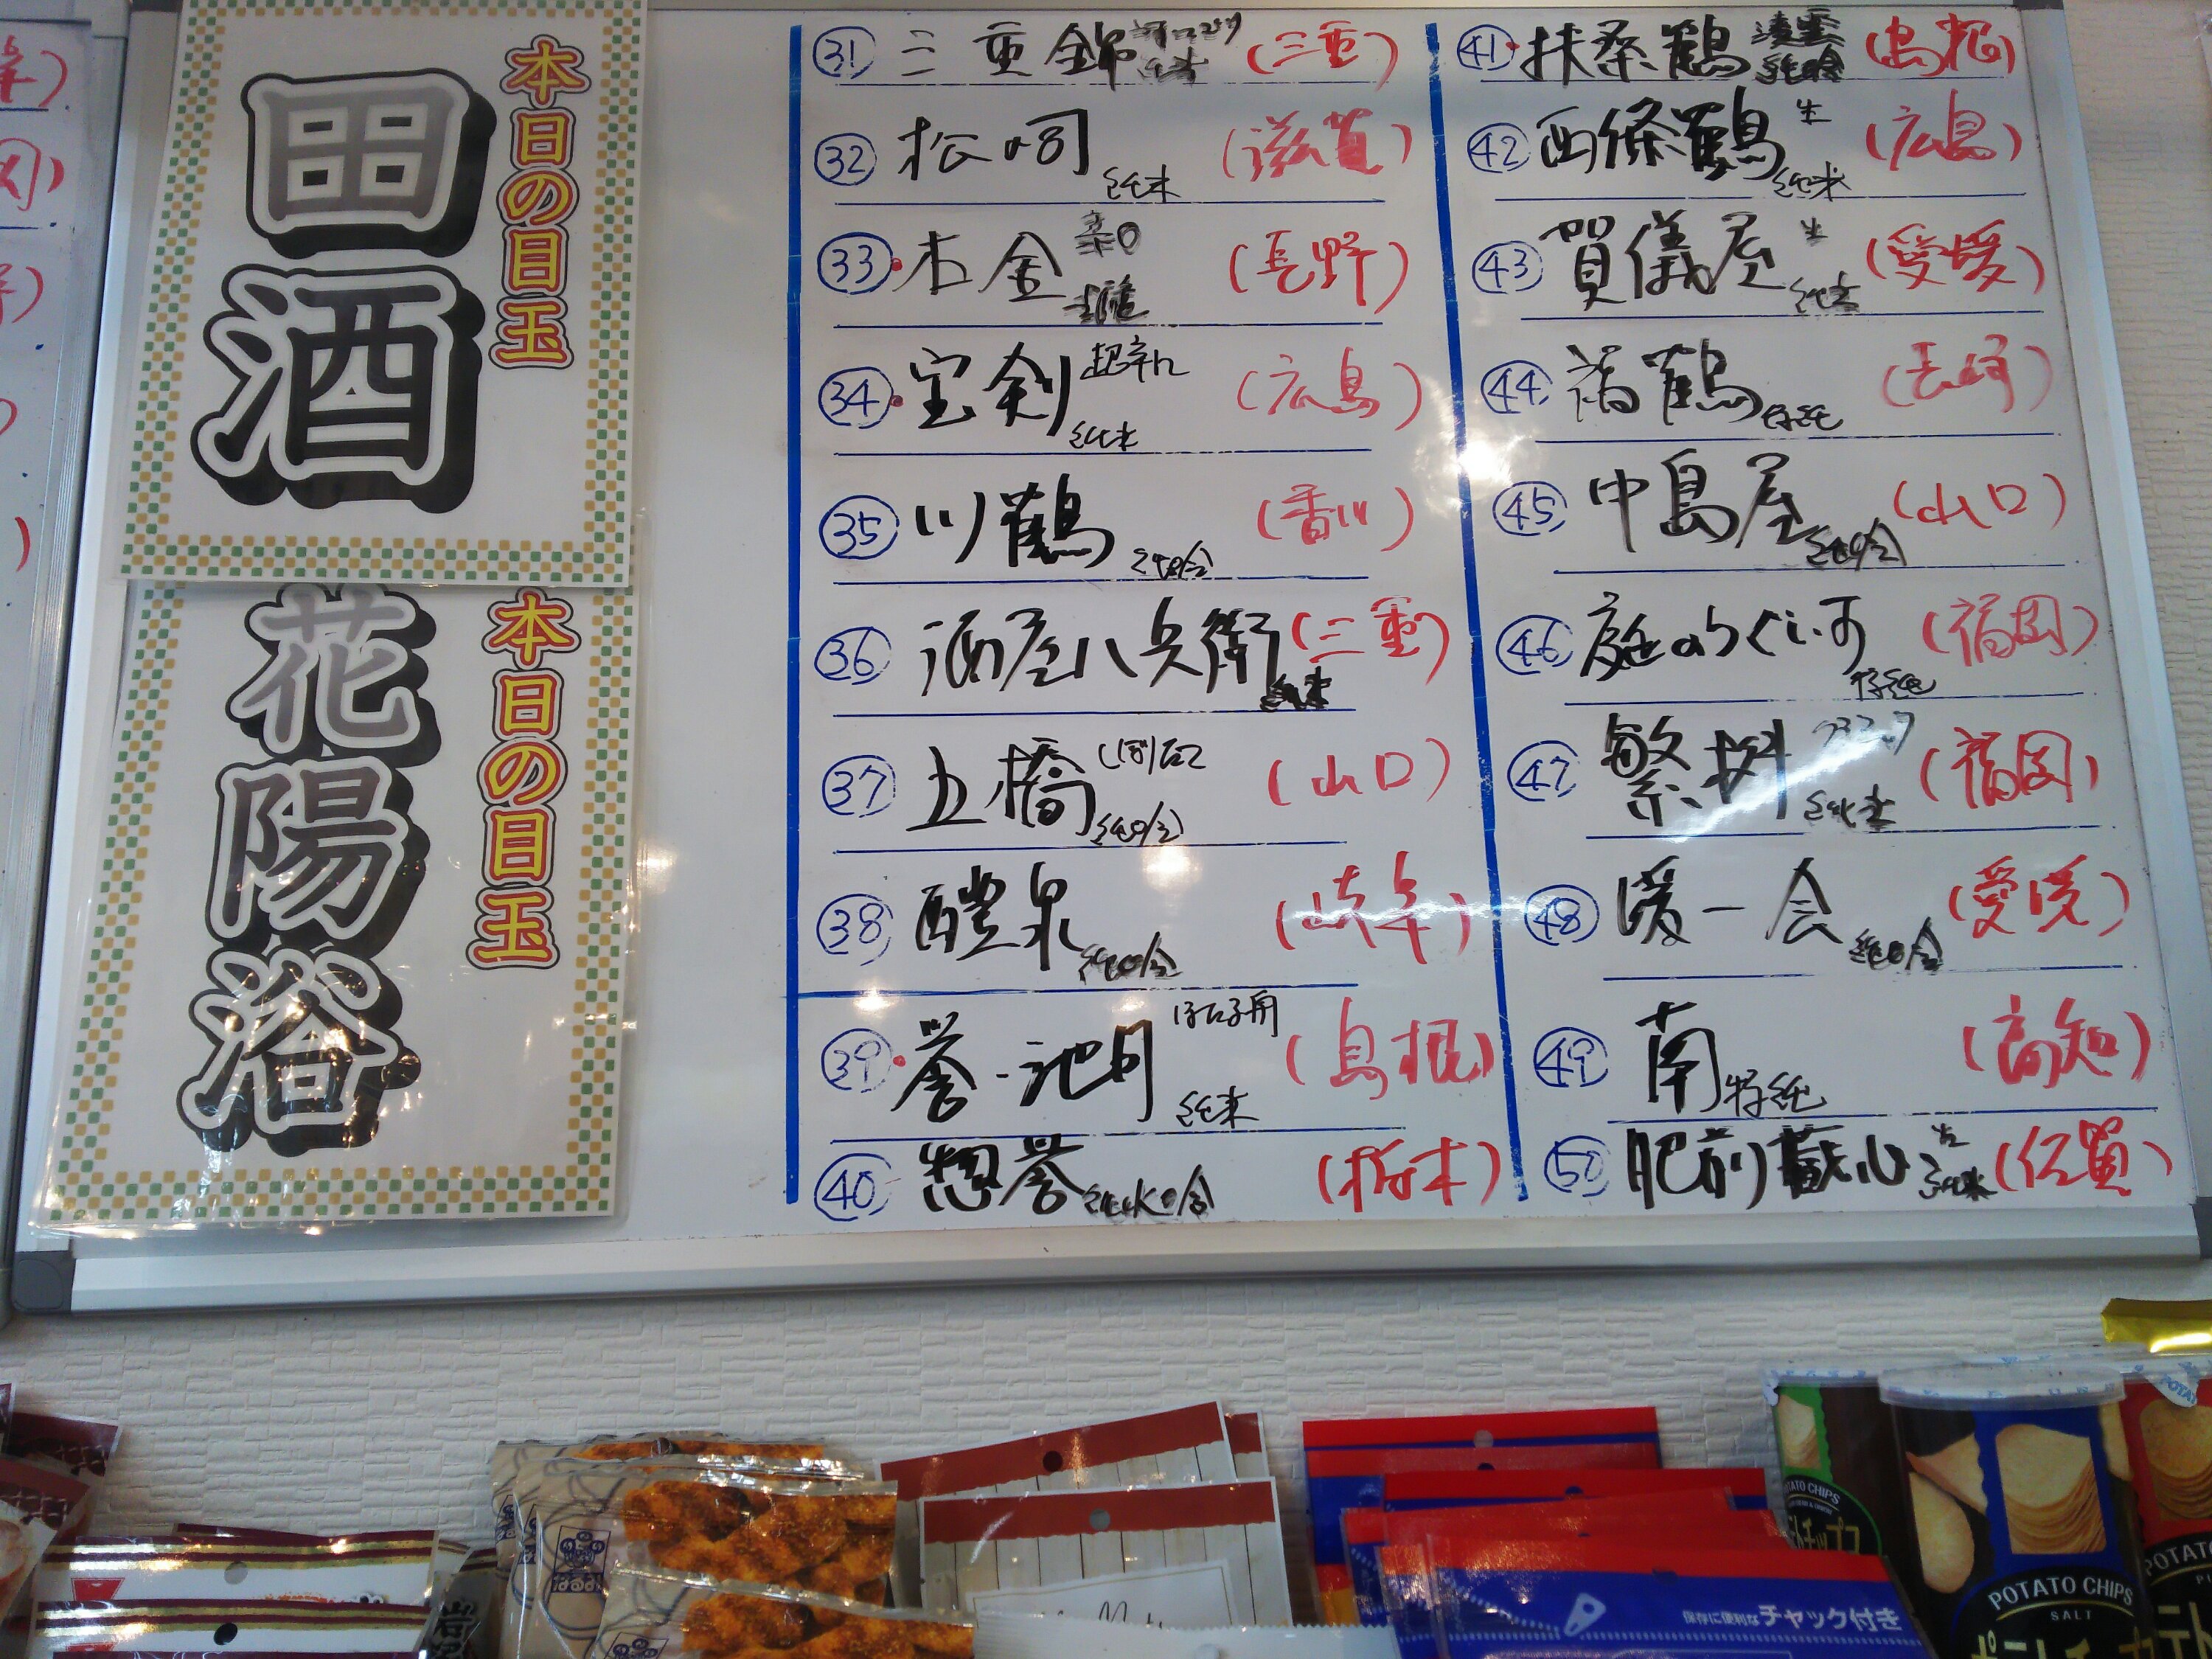 本日の目玉
田酒
本日の目玉
花陽浴
31 三重錦 純米 (三重)
32 松の司 純米 (滋賀)
33 木金 辛口 (長野)
34 宝剣 超辛口 純米 (広島)
35 川鶴 純吟 (香川)
36 酒屋八兵衛 純米 (三重)
37 五橋 純吟 (山口)
38 醴泉 純吟 (岐阜)
39 誉池月 純米 (島根)
40 惣誉 純米吟 (栃木)
41 扶桑鶴 純吟 (島根)
42 西條鶴 生 純米 (広島)
43 賀儀屋 生 純米 (愛媛)
44 福鶴 特純 (長崎)
45 中島屋 純吟 (山口)
46 庭のうぐいす 特純 (福岡)
47 繁桝 純米 (福岡)
48 媛一会 純吟 (愛媛)
49 南 特純 (高知)
50 肥前蔵心 生 純米 (佐賀)
保存に便利なチャック付き
POTATO CHIPS
POTATO CHIPS
SALT